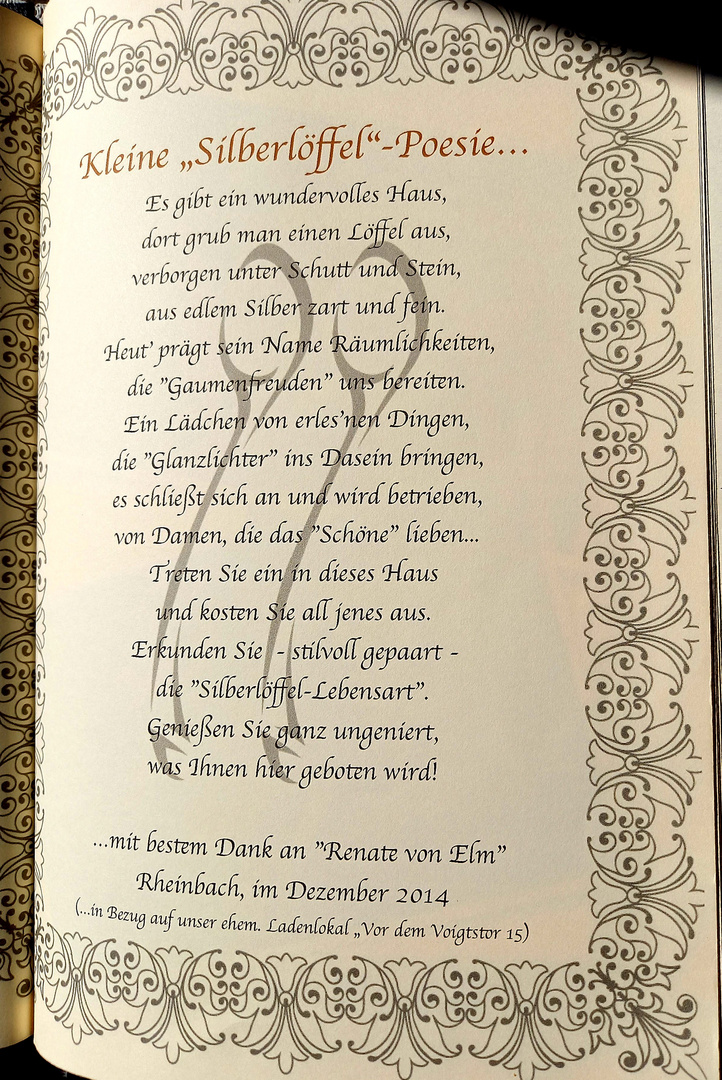 Kleine „Silberlöffel“-Poesie...
Es gibt ein wundervolles Haus,
dort grub man einen Löffel aus,
verborgen unter Schutt und Stein,
aus edlem Silber zart und fein.
Heut' prägt sein Name Räumlichkeiten,
die "Gaumenfreuden" uns bereiten.
Ein Lädchen von erles'nen Dingen,
die "Glanzlichter" ins Dasein bringen,
es schließt sich an und wird betrieben,
von Damen, die das "Schöne" lieben...
Treten Sie ein in dieses Haus
und kosten Sie all jenes aus.
Erkunden Sie - stilvoll gepaart -
die "Silberlöffel-Lebensart".
Genießen Sie ganz ungeniert,
was Ihnen hier geboten wird!
...mit bestem Dank an "Renate von Elm"
Rheinbach, im Dezember 2014
(...in Bezug auf unser ehem. Ladenlokal „Vor dem Voigtstor 15)